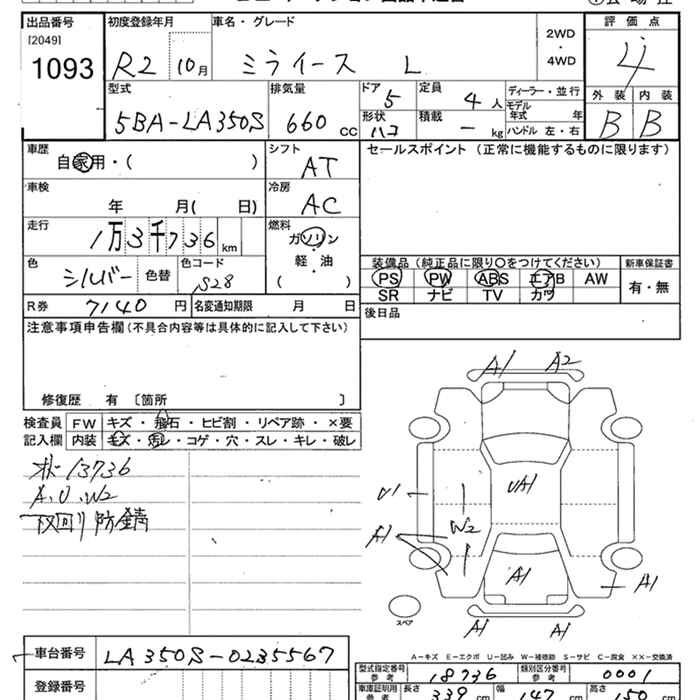 出品番号 初度登録年月 車名・グレード 2WD ・ 4WD 評価点
[2049]
1093 R2 10月 ミライース L 4
型式 排気量 ドア 定員 ディーラー・並行 外装 内装
5BA-LA350S 660 CC 5 4人 モデル年式 年 B B
形状 積載 ハンドル 左・右
ハコ - kg
車歴 シフト セールスポイント (正常に機能するものに限ります)
自家用・( ) AT
車検 冷房
年 月( 日) AC
走行 燃料
1万3千736 km ガソリン
軽・油
( )
色 色コード 装備品 (純正品に限り○をつけてください) 新車保証書
シルバー 色替 S28 PS PW ABS エアB AW 有・無
SR ナビ TV カワ
R券 7140 円 名変通知期限 月 日 後日品
注意事項申告欄 (不具合内容等は具体的に記入して下さい)
修復歴 有 [箇所 ]
検査員 FW キズ・飛石・ヒビ割・リペア跡・×要
記入欄 内装 キズ・汚レ・コゲ・穴・スレ・キレ・破レ
13736
A.U.W2
下回り防錆
A1 A2
UA1
U1
W2
A1
A1
A1
A1 A1
スペア
A−キズ E−エクボ U−凹み W−補修跡 S−サビ C−腐食 ××−交換済
車台番号 LA350S-0235567
型式指定番号 参考 18736 類別区分番号 参考 0001
登録番号
車庫証明用 参考 長さ 339 cm 幅 147 cm 高さ 150 cm